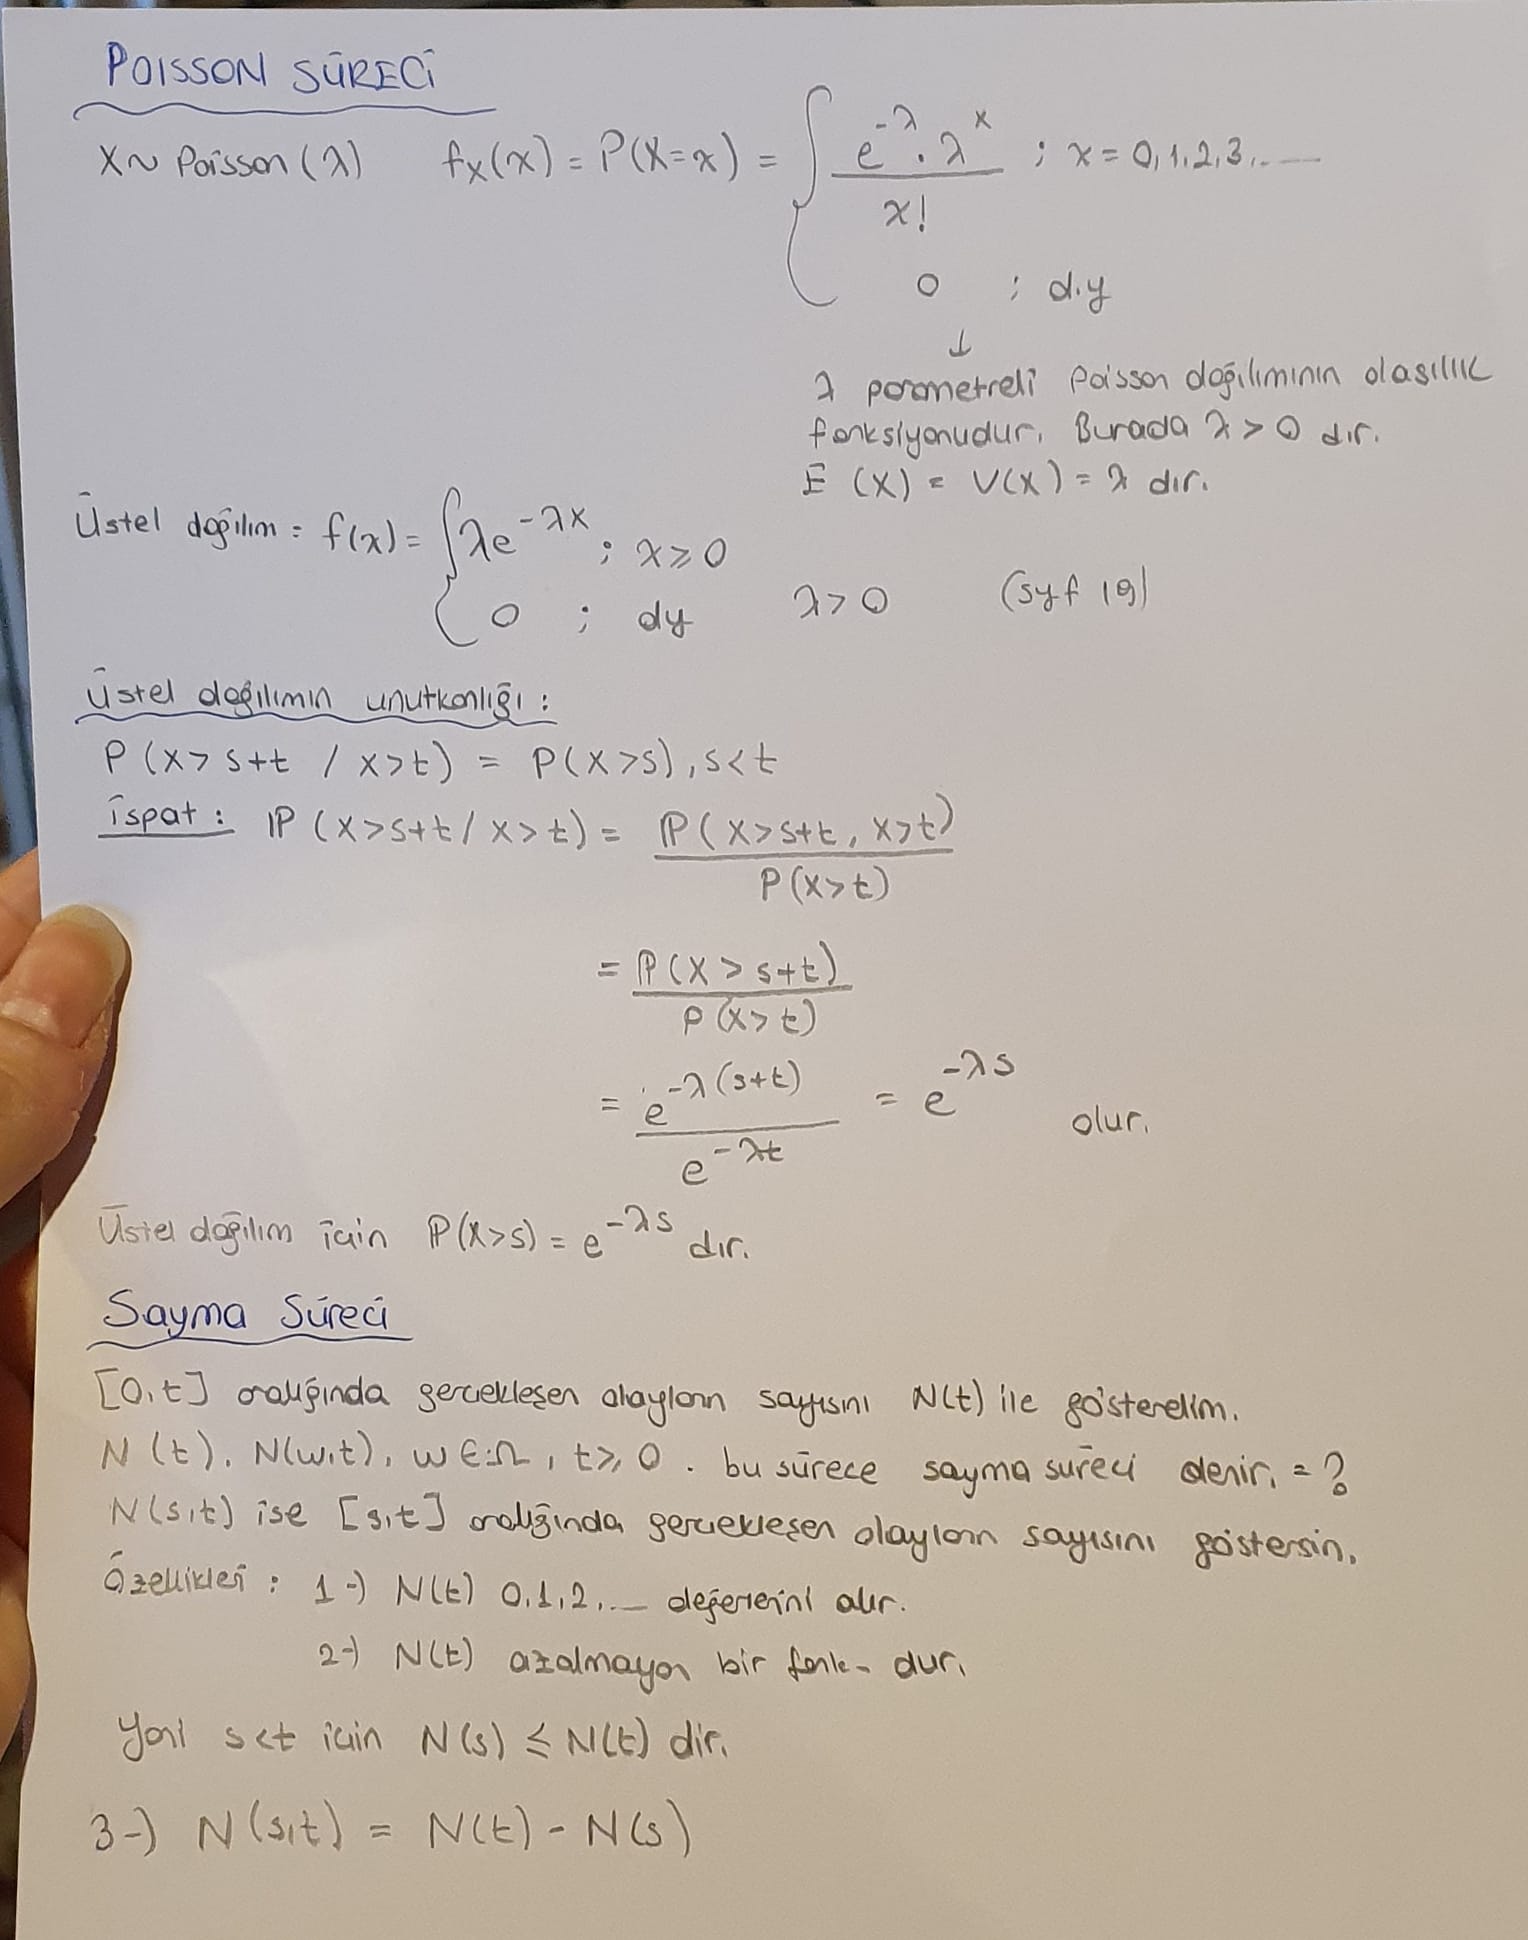 POISSON SÜRECİ
X ~ Poisson (λ) fx(x) = P(X=x) = { e^-λ . λ^x / x! ; x = 0,1,2,3,...
0 ; d.y
↓
λ parametreli Poisson dağılımının olasılık
fonksiyonudur. Burada λ > 0 dır.
E (X) = V(X) = λ dır.
Üstel dağılım : f(x) = { λe^-λx ; x ≥ 0
0 ; dy λ > 0 (syf 19)
Üstel dağılımın unutkanlığı :
P (X > s+t / X > t) = P(X > s) , s < t
İspat : P (X > s+t / X > t) = P(X > s+t, X > t) / P(X > t)
= P(X > s+t) / P(X > t)
= e^-λ(s+t) / e^-λt = e^-λs olur.
Üstel dağılım için P(X > s) = e^-λs dır.
Sayma Süreci
[0,t] aralığında gerçekleşen olayların sayısını N(t) ile gösterelim.
N (t), N(w,t), w ∈ Ω , t ≥ 0 . bu sürece sayma süreci denir. = ?
N(s,t) ise [s,t] aralığında gerçekleşen olayların sayısını göstersin.
Özellikleri : 1-) N(t) 0,1,2,... değerlerini alır.
2-) N(t) azalmayan bir fonk- dur.
Yani s<t için N(s) ≤ N(t) dir.
3-) N(s,t) = N(t) - N(s)